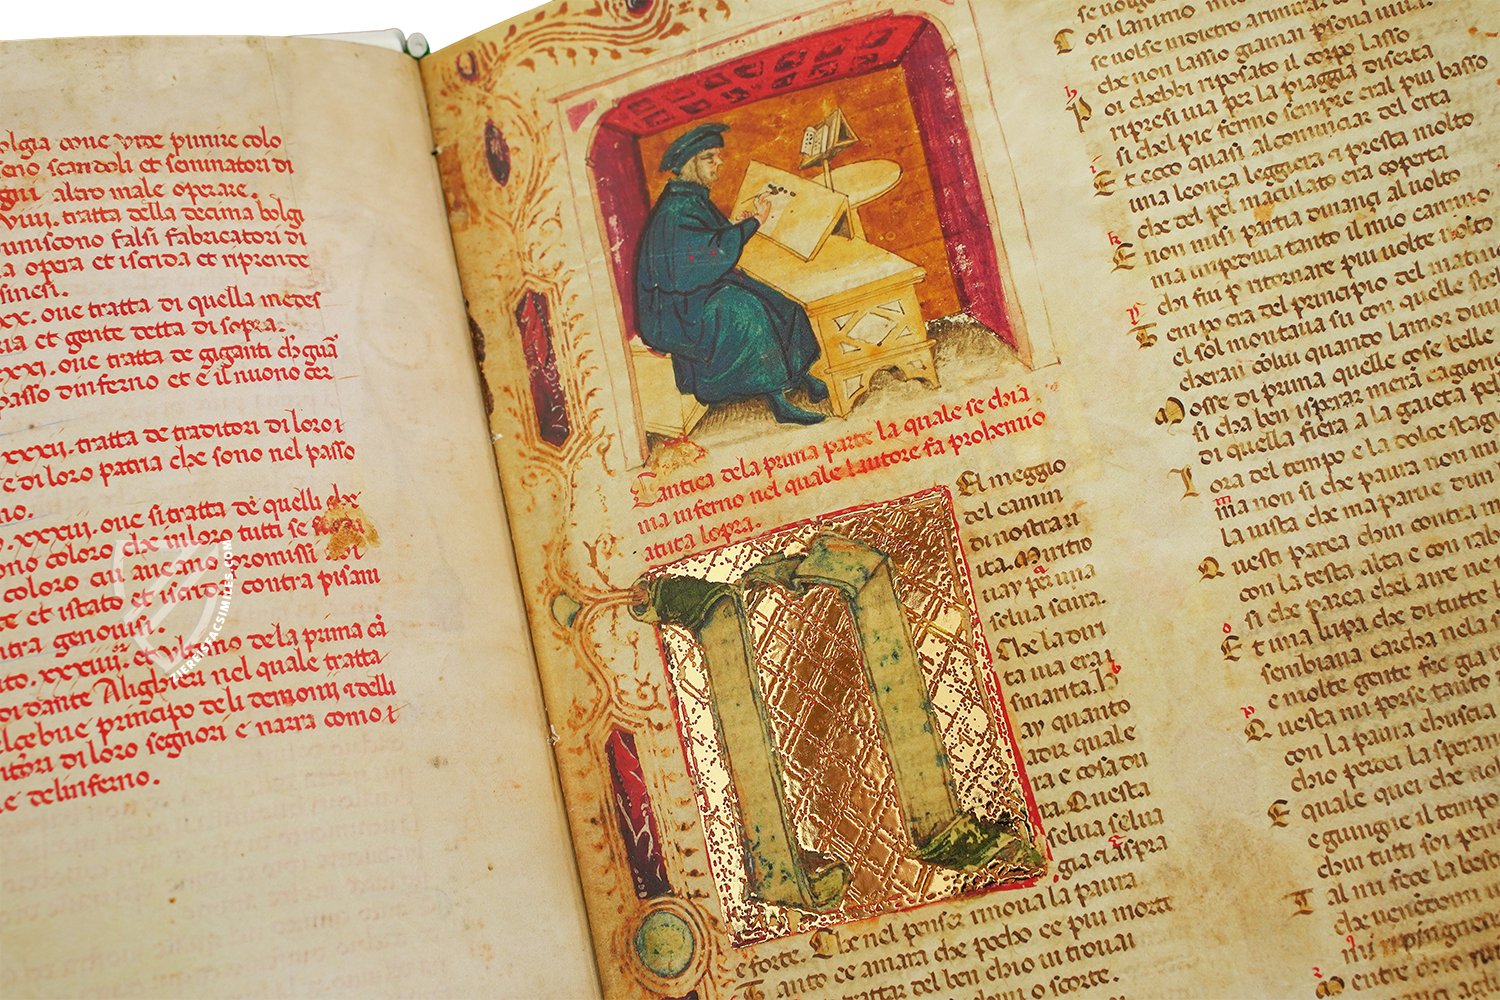 olgia oue vide punire colo
seno scandoli et seminatori di
altro male operare.
tratta della decima bolgi
puniscono falsi fabricatori di
opera et iscrida et riprende
sinesi.
xx. oue tratta di quella medes
et gente detta di sopra.
xxxi. oue tratta de giganti
passo dinferno et e il nuono cer
xxxii. tratta de traditori di loro
e di loro patria che sono nel passo
no.
xxxiii. oue si tratta di quelli che
coloro che in loro tutti se
coloro cui aueano promissi
te et istato et iscrida contra pisani
ntra genouisi.
to. xxxiiii. et ultimo de la prima
di dante Alighieri nel quale tratta
elcebue principo de li demoni
di loro segnori e narra como
e delinferno.
Cantica de la prima parte la quale se chia
ma inferno nel quale lautore fa prohemio
a tuta lopra.
N
El meggio
del camin
di nostra u
ita. Mi ritro
uay per una
selua scura.
Che la diri
ta uia era
smarita. h
ay quanto
adir quale
ra e cosa du
ra. Questa
selua selua
gia aspra
e forte. Che nel penser rinoua la paura
Tanto ee amara che pocho ee piu morte
trattar del ben chio ui trouai
o scorte.
Cosi lanimo
se uolse indietro
che non lasso giamai persona uiua
Poi chebbi riposato il corpo lasso
ripresi uia per la piaggia diserta
si chel pie fermo sempre eral piu basso
Et ecco quasi al cominciar del erta
una leonça leggera e presta molto
che del pel maculato era coperta
E non mi si partia dinançi al uolto
ma impediua tanto il mio camino
chi fui per ritornare piu uolte uolto
Tempo era del principio del matin
el sol montaua su con quelle stel
cheran con lui quando lamor diui
Mosse di prima quelle cose belle
si cha ben isperar mera cagion
di quella fiera a la gaieta pel
Lora del tempo e la dolce stagi
ma non si che paura non mi
la uista che ma parue dun
Questi parea chincontra m
con la testa alta e con rab
si che parea chel aire ne t
Et una lupa che di tutte b
sembiaua carcha nela s
e molte gente fee gia u
Questa mi porse tanto
con la paura chuscia
chio perdei la speran
E quale quei che uol
e giungie il tempo
chin tutti soi pen
Tal mi feçe la bes
che uenendomi
mi ripingeu
Mentre
ZIEREISFACSIMILES.COM